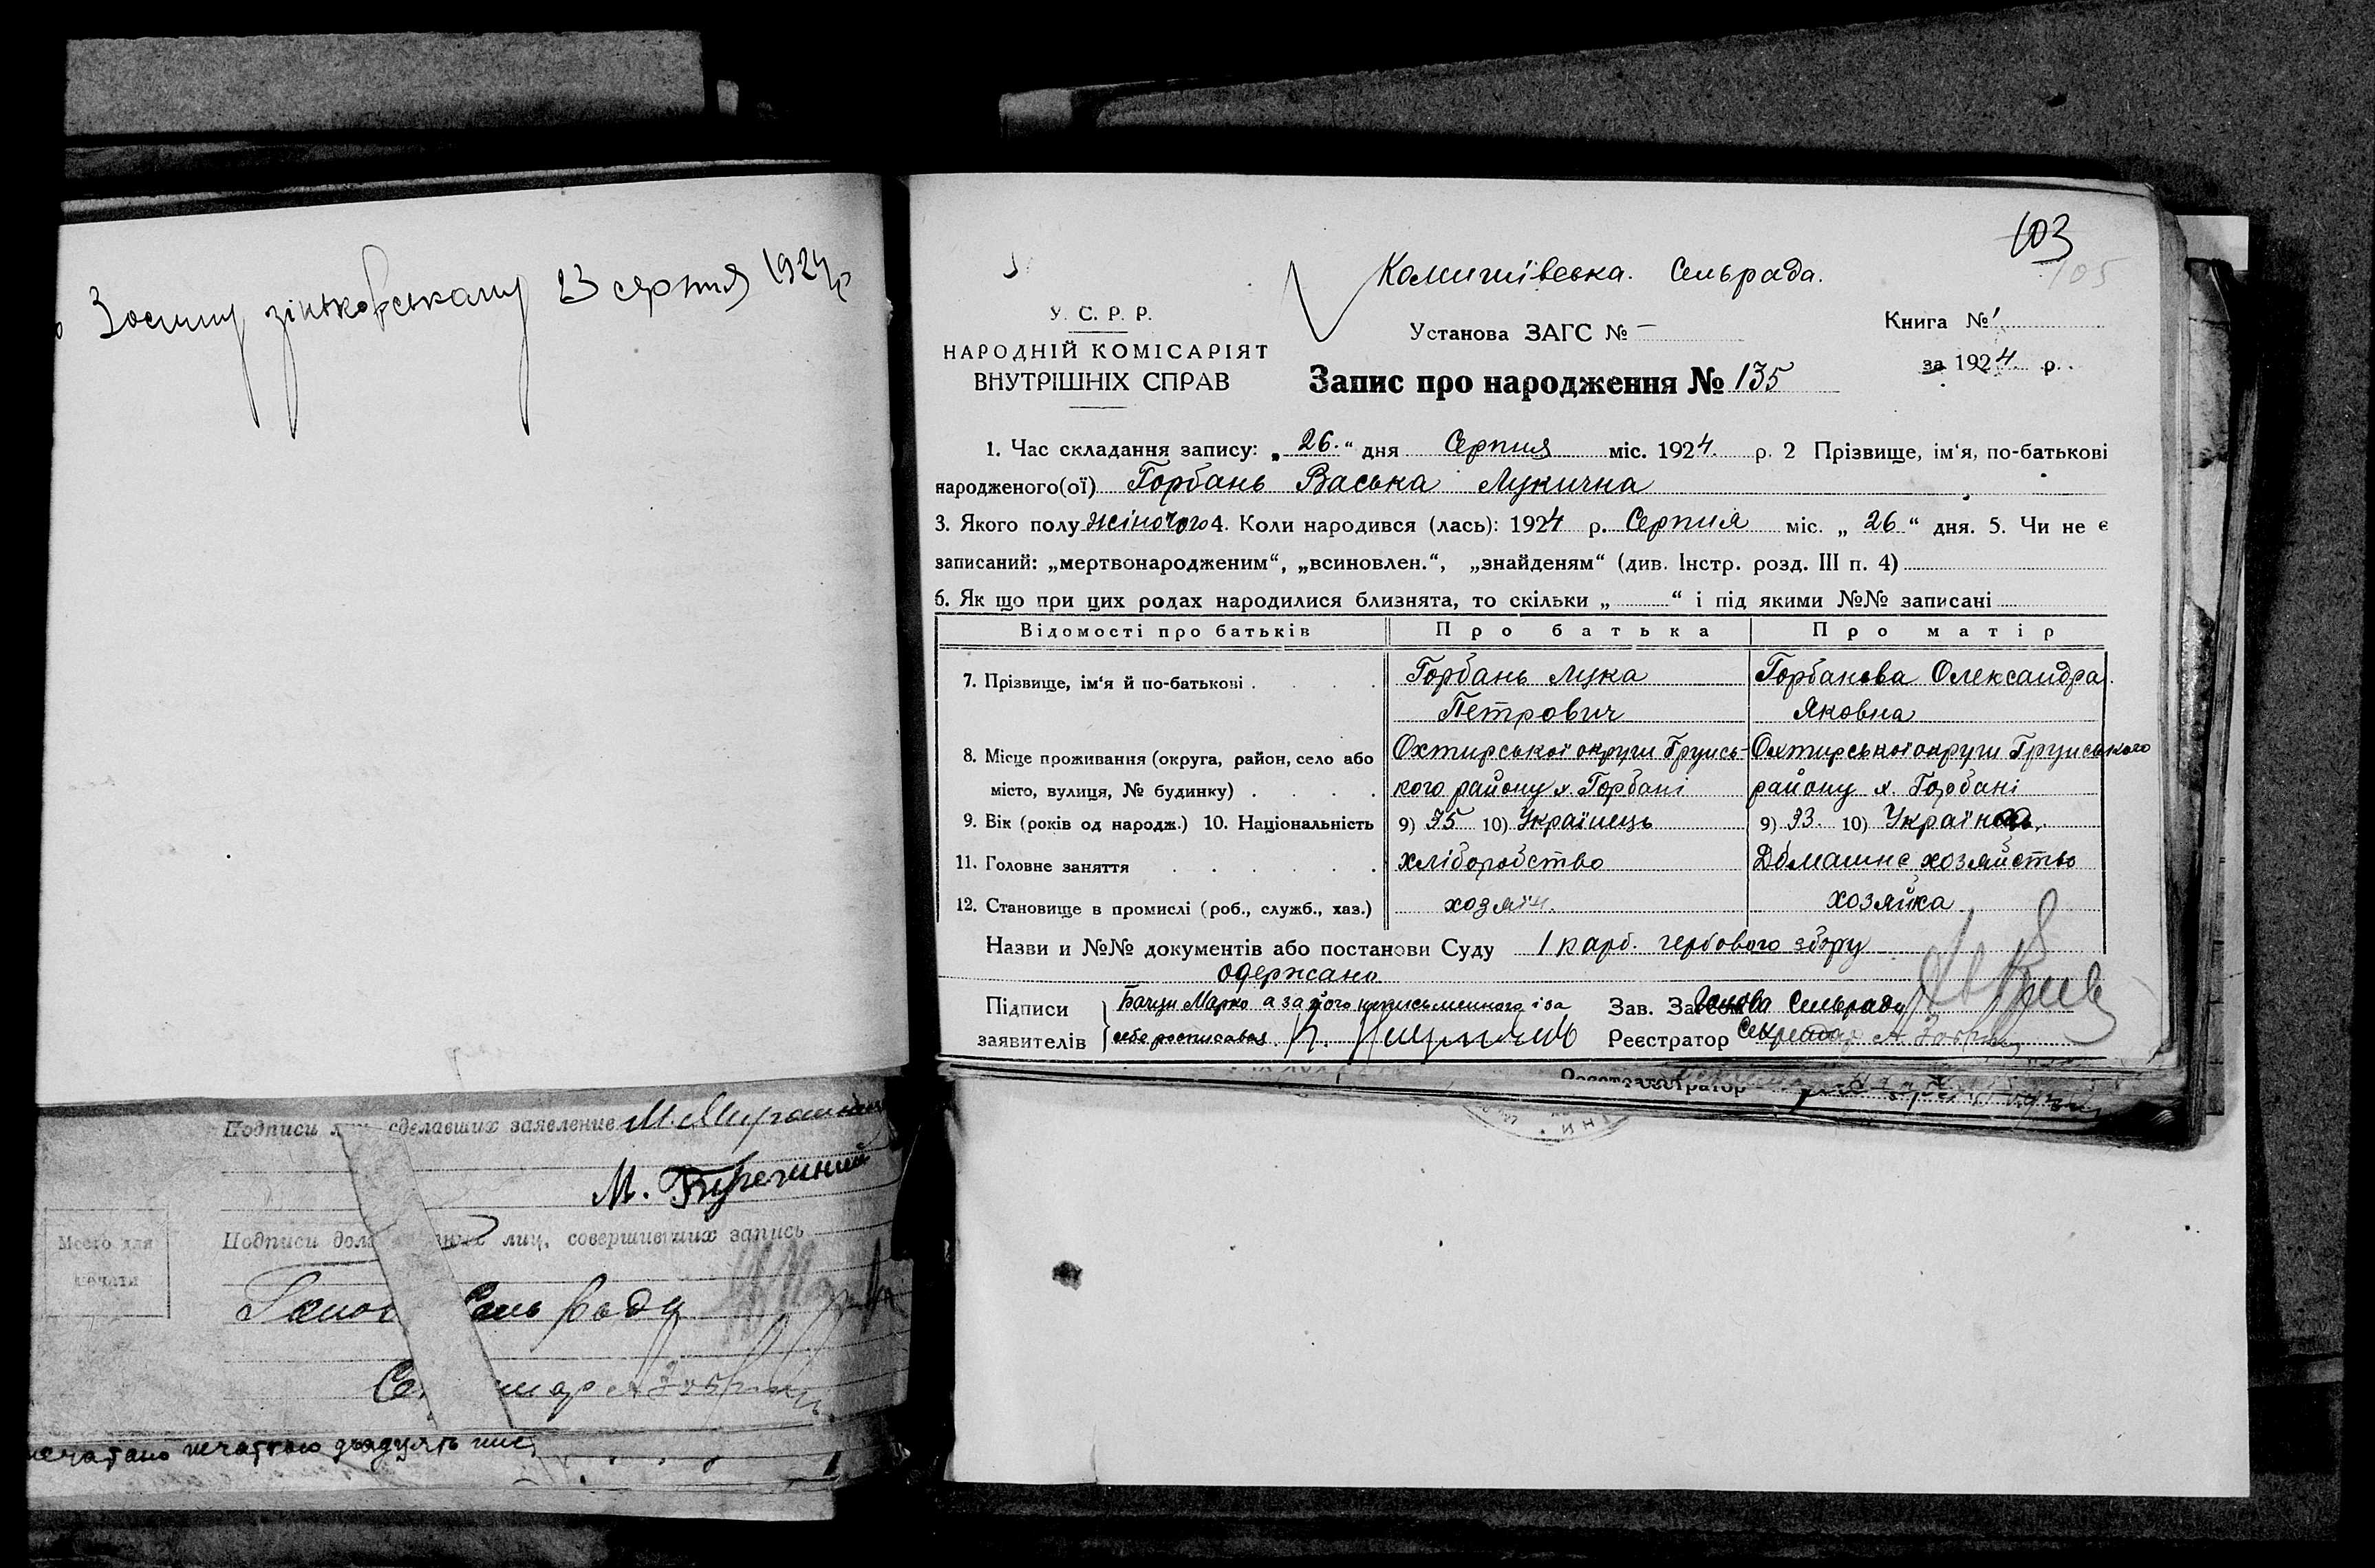 Зосиму зіньковському 23 серпня 1924 р
Подписи лиц сделавших заявление
Подписи дол лиц, совершивших запись
Место для
печати
Сель ради
печатано печаткою
103
105
Комишівська. Сельрада.
У. С. Р. Р.
НАРОДНІЙ КОМІСАРІЯТ
ВНУТРІШНІХ СПРАВ
Установа ЗАГС № —
Книга № 1
за 1924 р.
Запис про народження № 135
1. Час складання запису: „ 26. “ дня Серпня міс. 1924. р. 2 Прізвище, ім‘я, по-батькові
народженого(ої) Горбань Васька Лукична
3. Якого полу жіночого 4. Коли народився (лась): 1924 р. Серпня міс. „ 26 “ дня. 5. Чи не є
записаний: „мертвонародженим“, „всиновлен.“, „знайденям“ (див. Інстр. розд. III п. 4)
6. Як що при цих родах народилися близнята, то скільки „ “ і під якими №№ записані
Відомості про батьків Про батька Про матір
7. Прізвище, ім‘я й по-батькові . . . . Горбань Лука Горбанева Олександра
Петрович Яковна
8. Місце проживання (округа, район, село або Охтирської округи Грунсь- Охтирської округи Грунського
місто, вулиця, № будинку) . . . . кого району х. Горбані району х. Горбані
9. Вік (років од народж.) 10. Національність 9) 35 10) Українець 9) 33. 10)
11. Головне заняття . . . . . . хліборобство Домашнє хозяйство
12. Становище в промислі (роб., служб., хаз.) хозяін. хозяйка
Назви и №№ документів або постанови Суду 1 карб. гербового збору
одержано
Підписи Марко а за його неписьменного і за Зав. Загсом Голова Сельради
заявителів себе росписався Реєстратор Секретар
Реєстратор